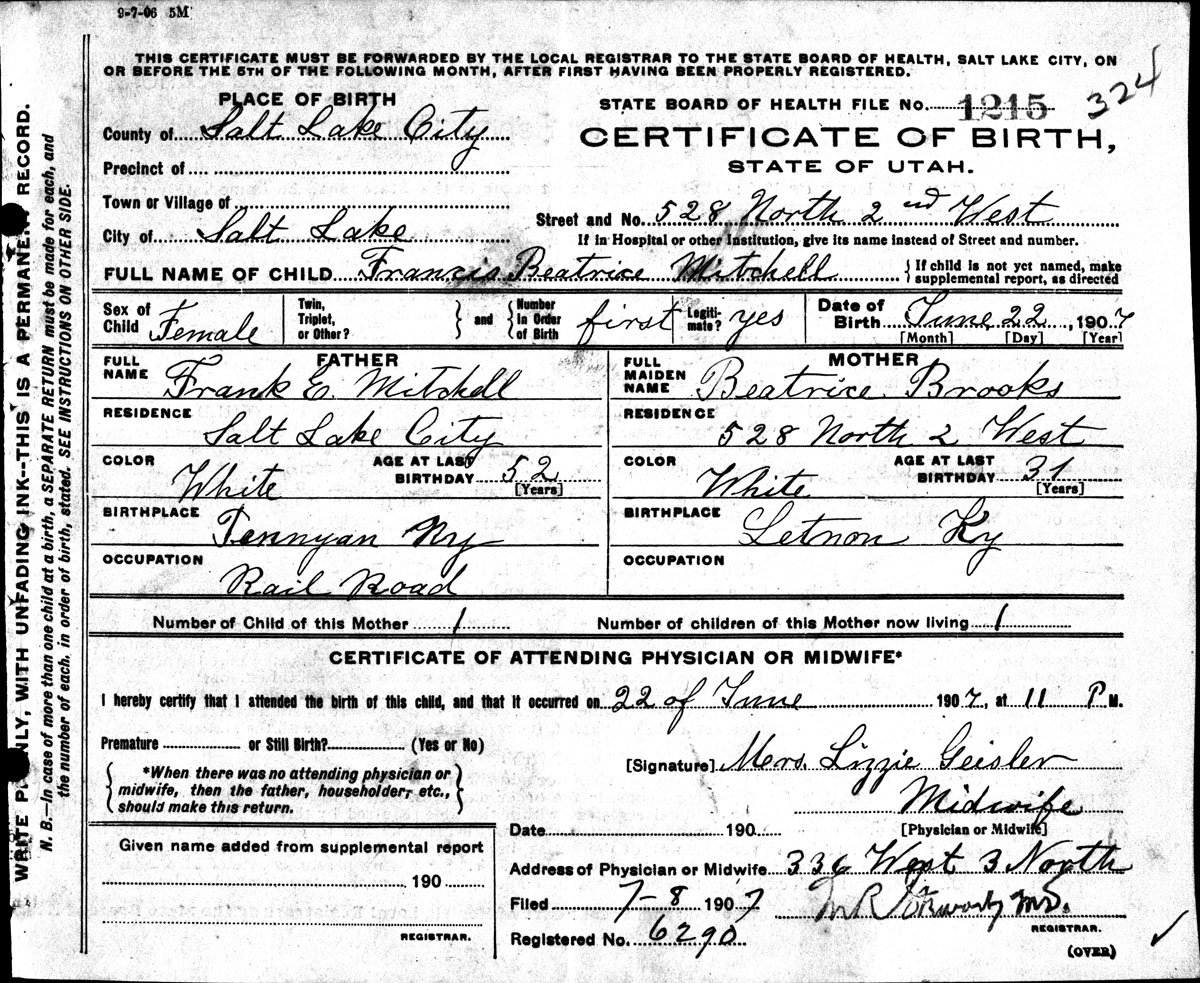 9-7-06 5M
THIS CERTIFICATE MUST BE FORWARDED BY THE LOCAL REGISTRAR TO THE STATE BOARD OF HEALTH, SALT LAKE CITY, ON
OR BEFORE THE 5TH OF THE FOLLOWING MONTH, AFTER FIRST HAVING BEEN PROPERLY REGISTERED.
PLACE OF BIRTH
County of Salt Lake City
Precinct of
Town or Village of
City of Salt Lake
STATE BOARD OF HEALTH FILE No. 1215 324
CERTIFICATE OF BIRTH,
STATE OF UTAH.
Street and No. 528 North 2nd West
If in Hospital or other Institution, give its name instead of Street and number.
FULL NAME OF CHILD Francis Beatrice Mitchell { If child is not yet named, make
supplemental report, as directed
Sex of Child Female
Twin, Triplet, or Other? } and { Number In Order of Birth first
Legiti-mate? yes
Date of Birth June 22, 1907
[Month] [Day] [Year]
FATHER
FULL NAME Frank E. Mitchell
RESIDENCE
Salt Lake City
COLOR White AGE AT LAST BIRTHDAY 52
[Years]
BIRTHPLACE
Ky
OCCUPATION
Rail Road
MOTHER
FULL MAIDEN NAME Beatrice Brooks
RESIDENCE
528 North 2 West
COLOR White AGE AT LAST BIRTHDAY 31
[Years]
BIRTHPLACE
Letnon Ky
OCCUPATION
Number of Child of this Mother 1 Number of children of this Mother now living 1
CERTIFICATE OF ATTENDING PHYSICIAN OR MIDWIFE*
I hereby certify that I attended the birth of this child, and that it occurred on 22 of June 1907, at 11 P M.
Premature or Still Birth? (Yes or No)
{ *When there was no attending physician or
midwife, then the father, householder, etc.,
should make this return. }
[Signature] Mrs. Lizzie Geisler
Midwife
[Physician or Midwife]
Date 190
Given name added from supplemental report
190
REGISTRAR.
Address of Physician or Midwife 336 West 3 North
Filed 7-8 1907
M.D.
REGISTRAR.
Registered No. 6290
(OVER)
WRITE PLAINLY, WITH UNFADING INK--THIS IS A PERMANENT RECORD.
N. B.—In case of more than one child at a birth, a SEPARATE RETURN must be made for each, and
the number of each, in order of birth, stated. SEE INSTRUCTIONS ON OTHER SIDE.